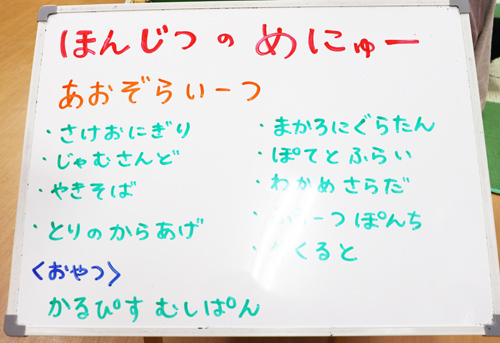 ほんじつ の めにゅー
あおぞらいーつ
・さけおにぎり
・じゃむさんど
・やきそば
・とりのからあげ
・まかろにぐらたん
・ぽてと ふらい
・わかめ さらだ
ぽんち
くると
<おやつ>
かるぴす むしぱん